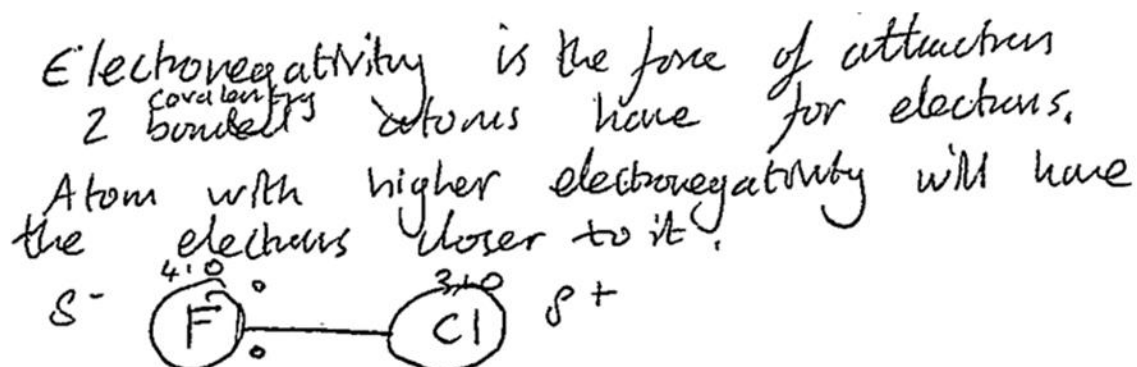 Electronegativity is the force of attraction
2 covalently bonded atoms have for electrons.
Atom with higher electronegativity will have
the electrons closer to it.
4.0 3.0
δ- F Cl δ+